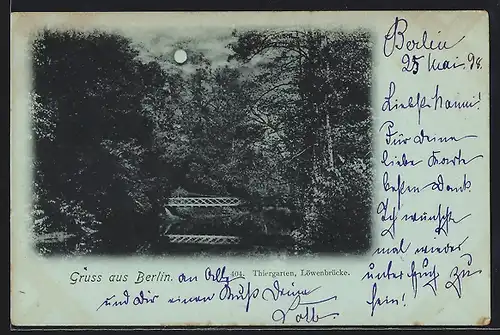 Berlin
25 Mai 98.
Liebste Hanni!
Für Deine
liebe Karte
besten Dank
Ich wünscht
mal wieder
unter Euch zu
sein!
Gruss aus Berlin. an Alle
404. Thiergarten, Löwenbrücke.
und Dir einen Kuß Deine